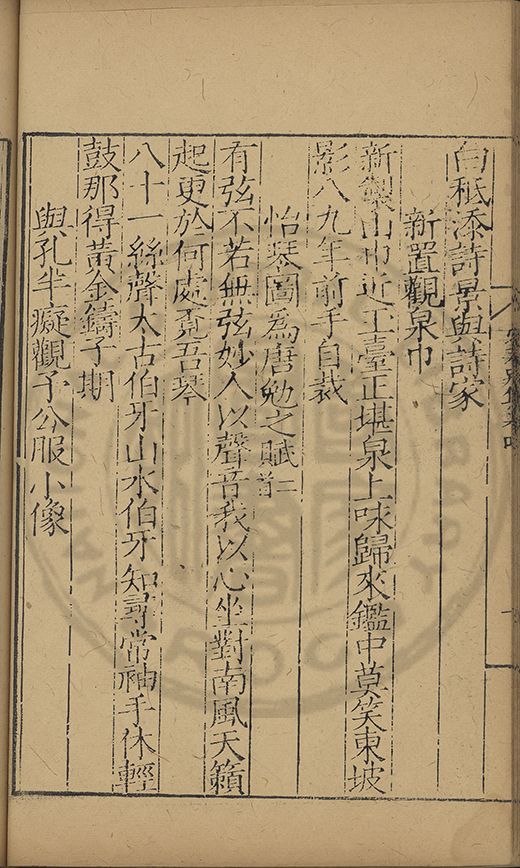 白秪添詩景與詩家
新置觀泉巾
新製山巾近玉臺正堪泉上味歸來鑑中莫笑東坡
影八九年前手自裁
怡琴圖爲唐勉之賦二首
有弦不若無弦妙人以聲音我以心坐對南風天籟
起更於何處覓吾琴
八十一絲聲太古伯牙山水伯牙知尋常袖手休輕
鼓那得黃金鑄子期
與孔半癡觀予公服小像